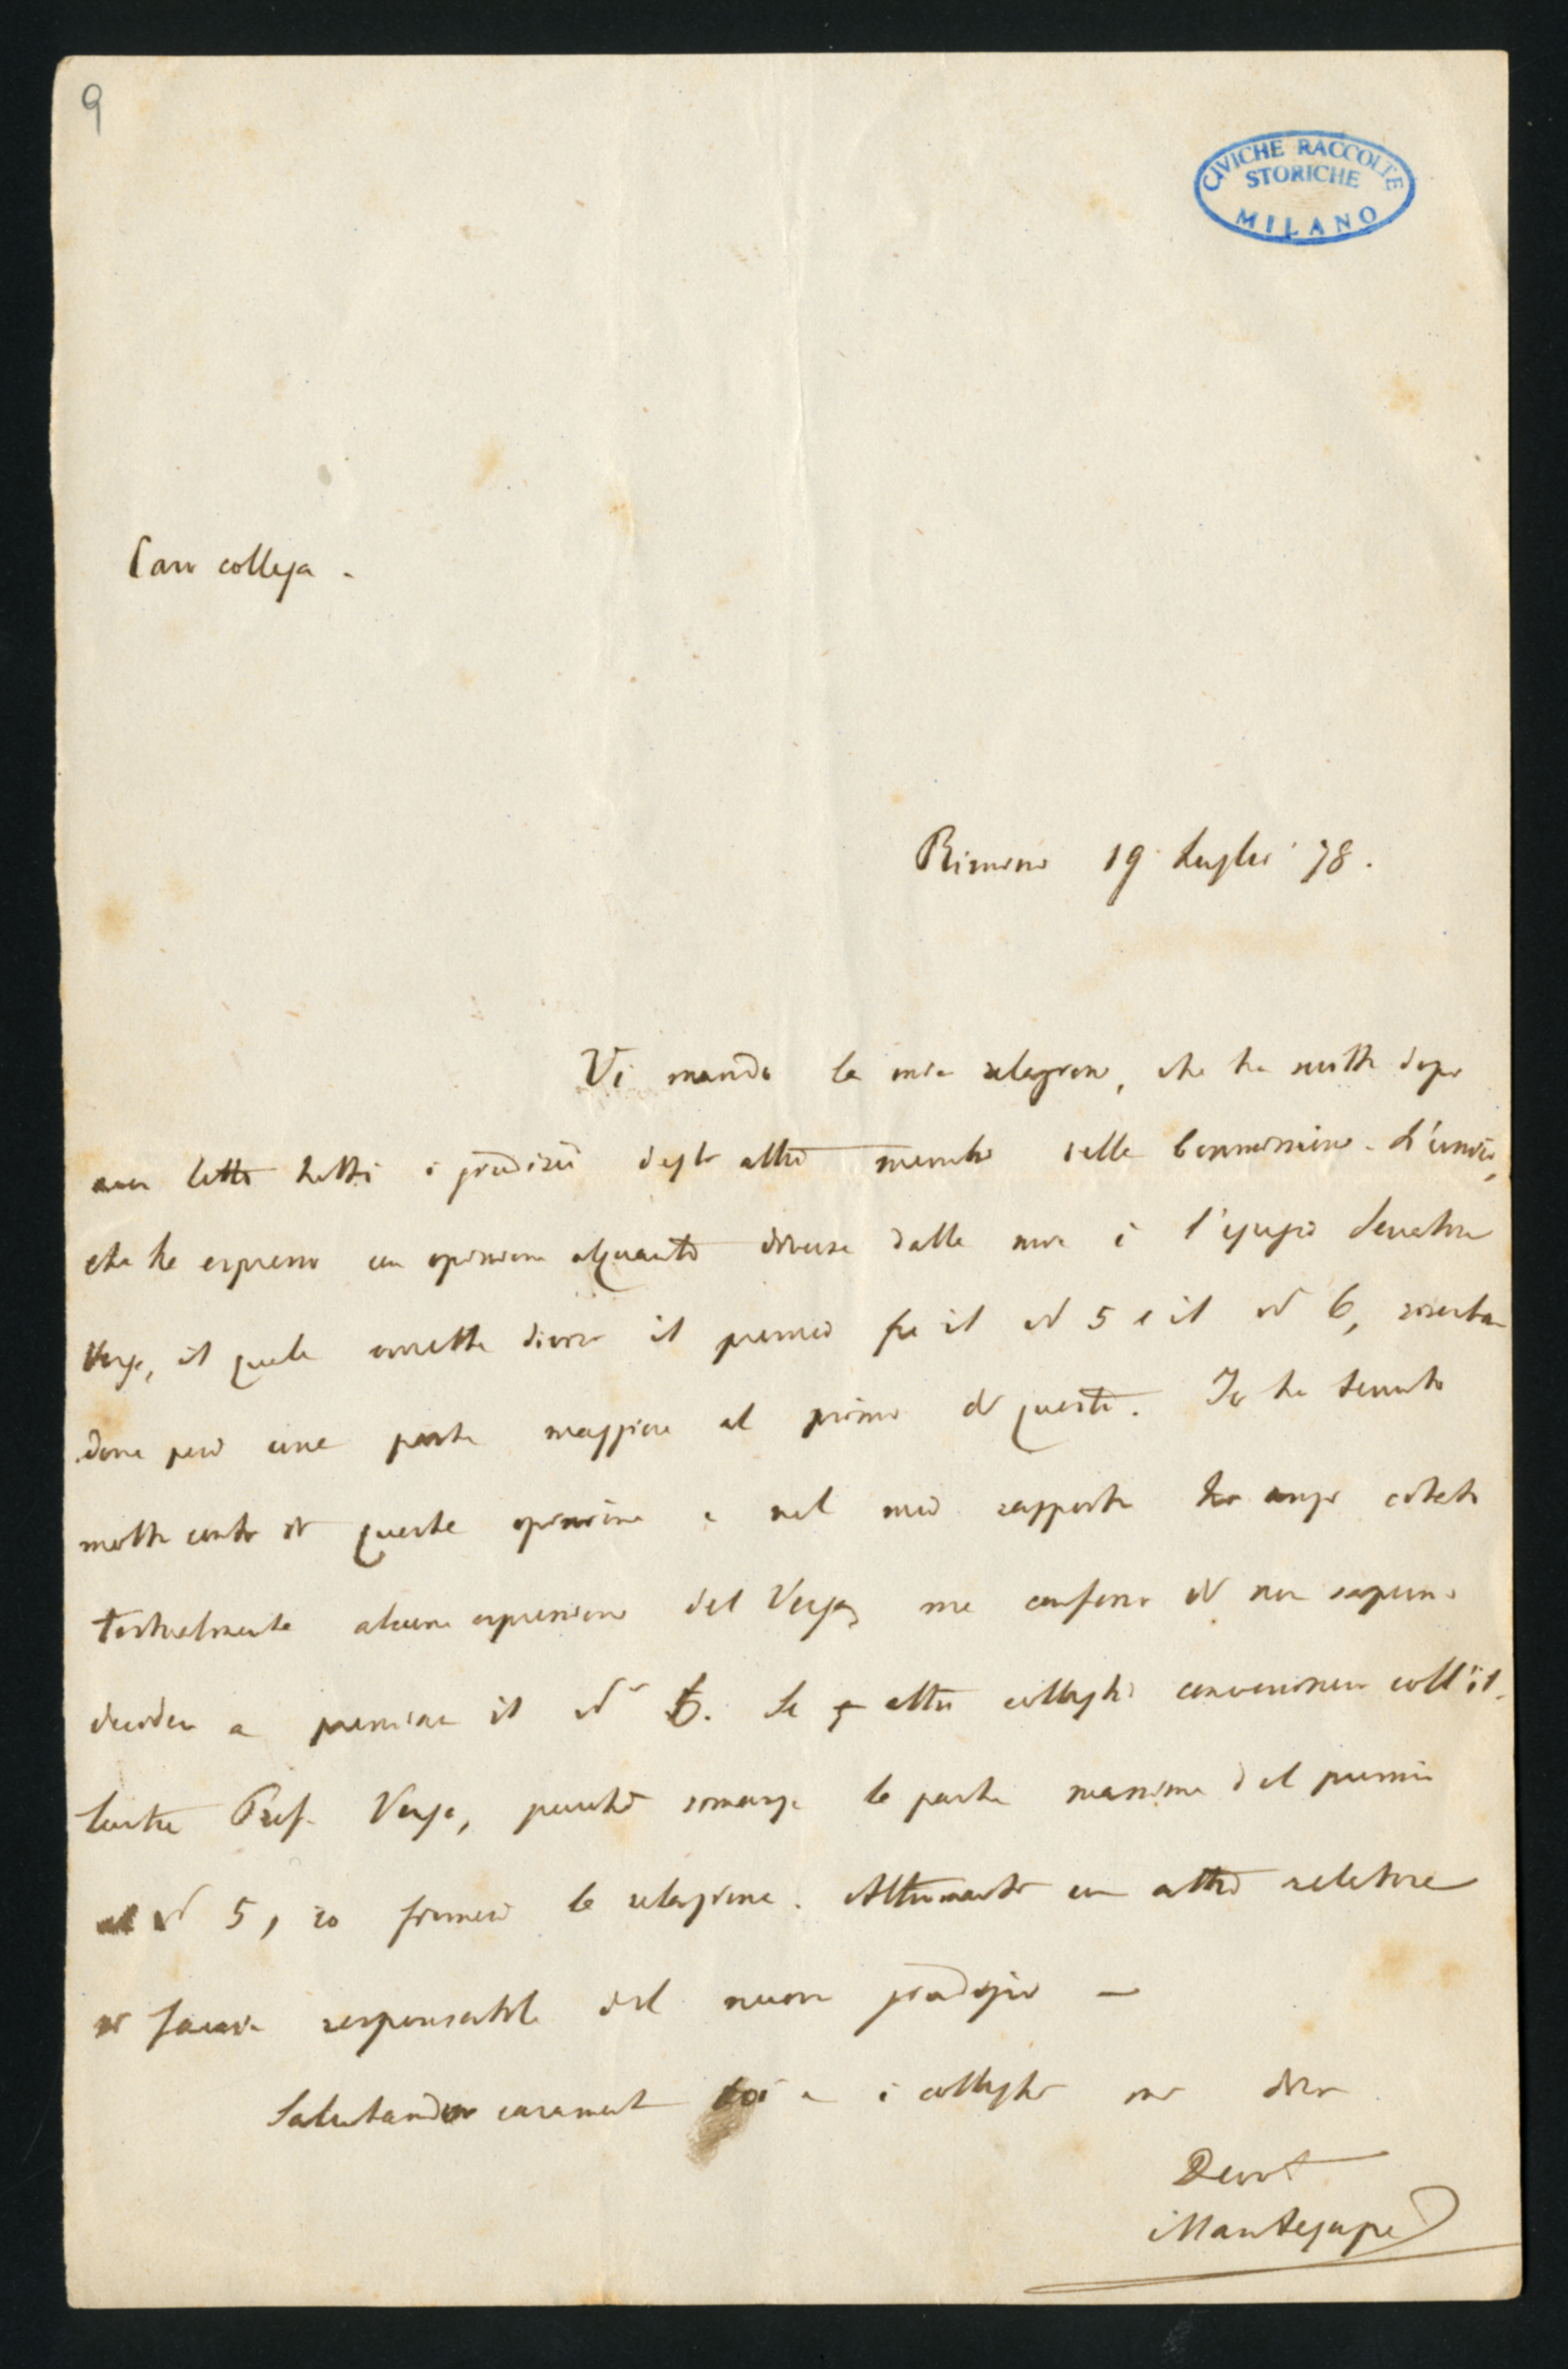 9
CIVICHE RACCOLTE
STORICHE
MILANO
Caro collega.
Rimini 19 Luglio 78.
Vi mando la mia relazione, che ho scritto dopo
aver letto tutti i giudizii degli altri membri della Commissione. L'unico,
che ha espresso un opinione alquanto diversa dalla mia è l'egregio Senatore
Verga, il quale vorrebbe diviso il premio fra il N 5 e il N 6, riserban
done però una parte maggiore al primo di questi. Io ho tenuto
molto conto di questa opinione e nel mio rapporto ho anzi citato
testualmente alcune espressioni del Verga, ma confesso di non sapermi
decidere a premiare il No 6. Se gli altri colleghi convenissero coll'il-
lustre Prof. Verga, purché rimanga la parte massima del premio
al N 5, io firmerò la relazione. Altrimenti un altro relatore
si faccia responsabile del nuovo giudizio —
Salutando caramente voi e i colleghi mi dico
Devot
Mantegazza